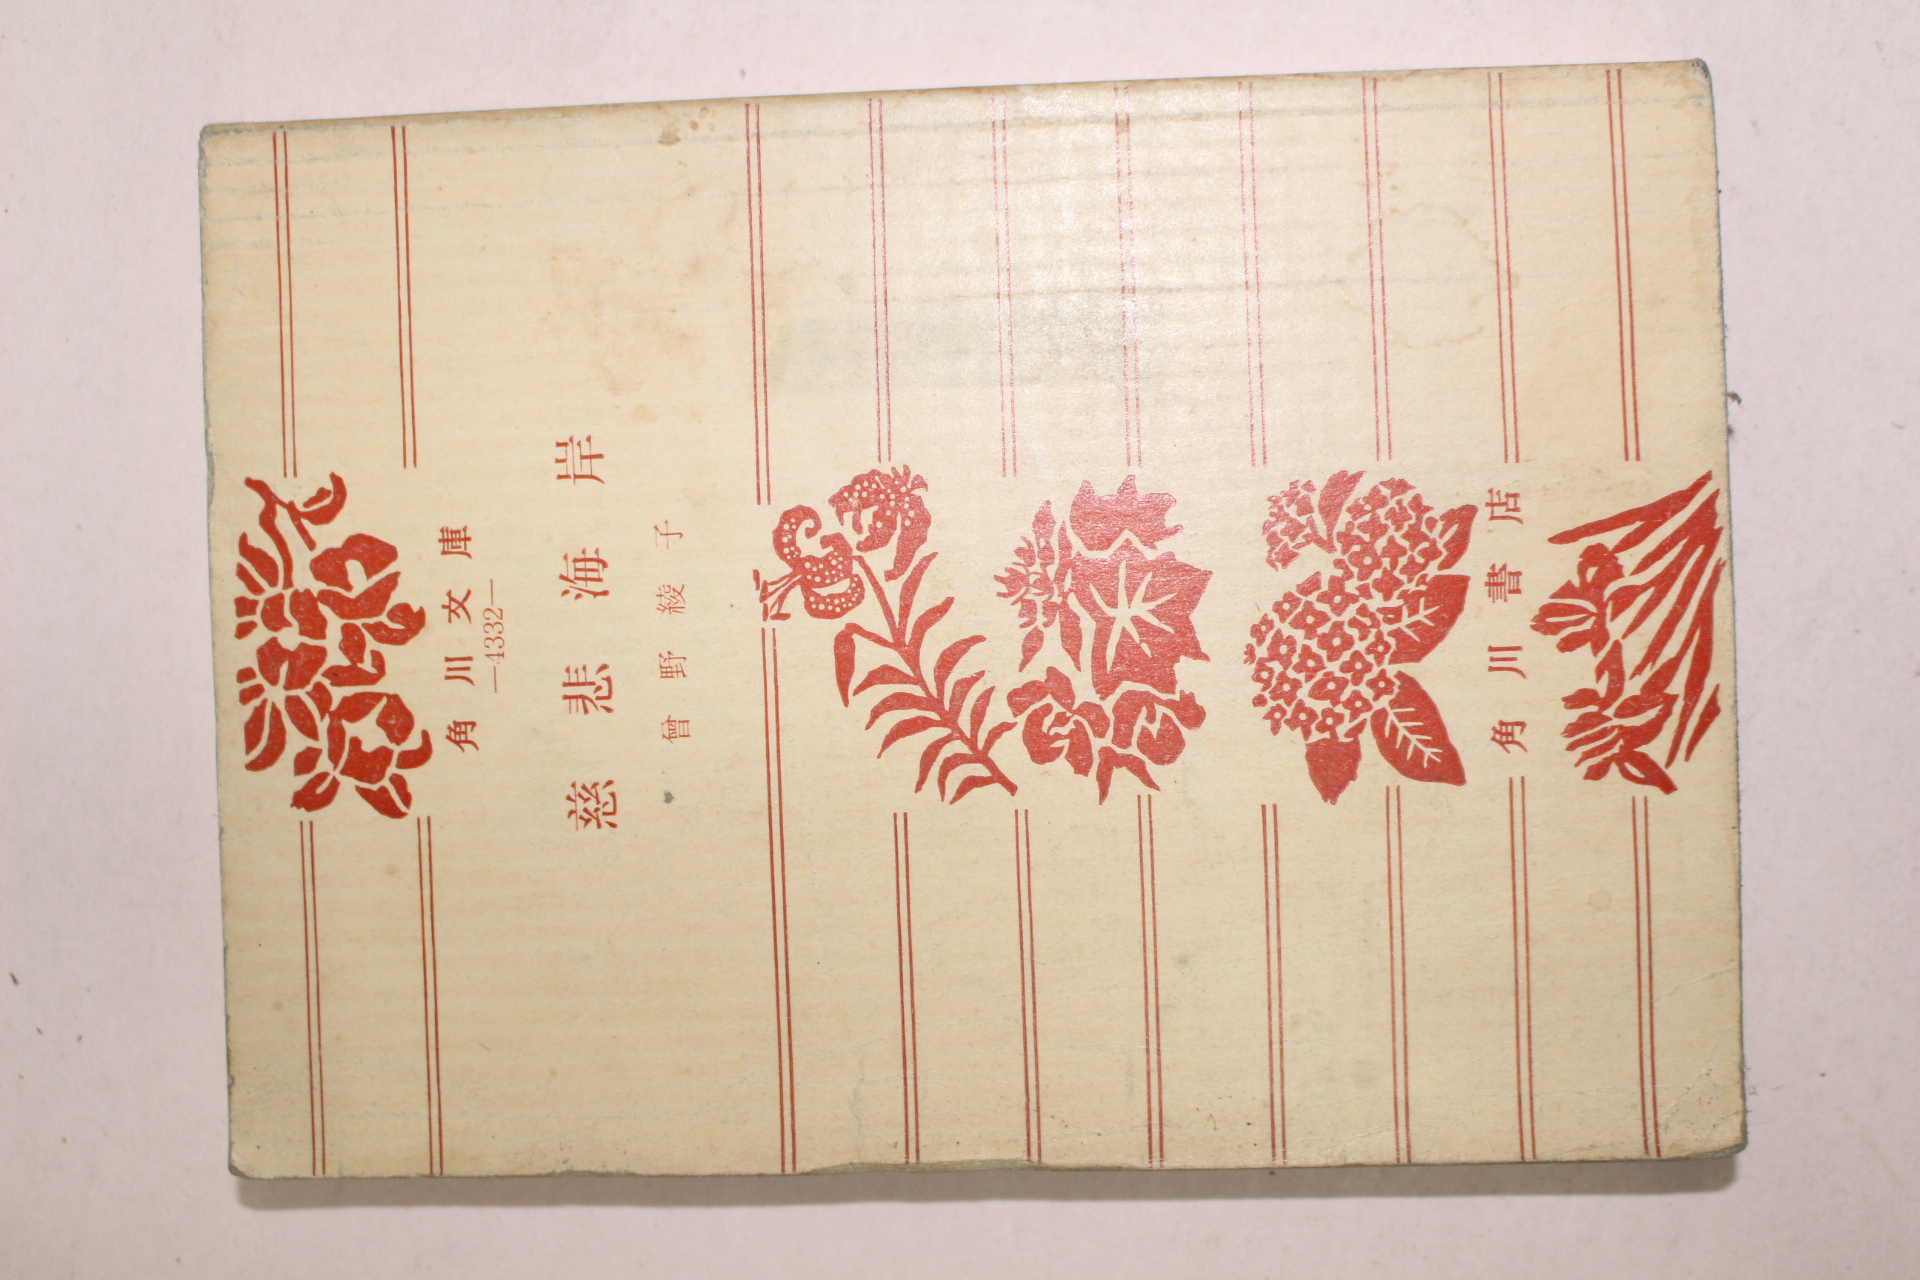 角川文庫
—4332—
慈悲海岸
曾野綾子
角川書店